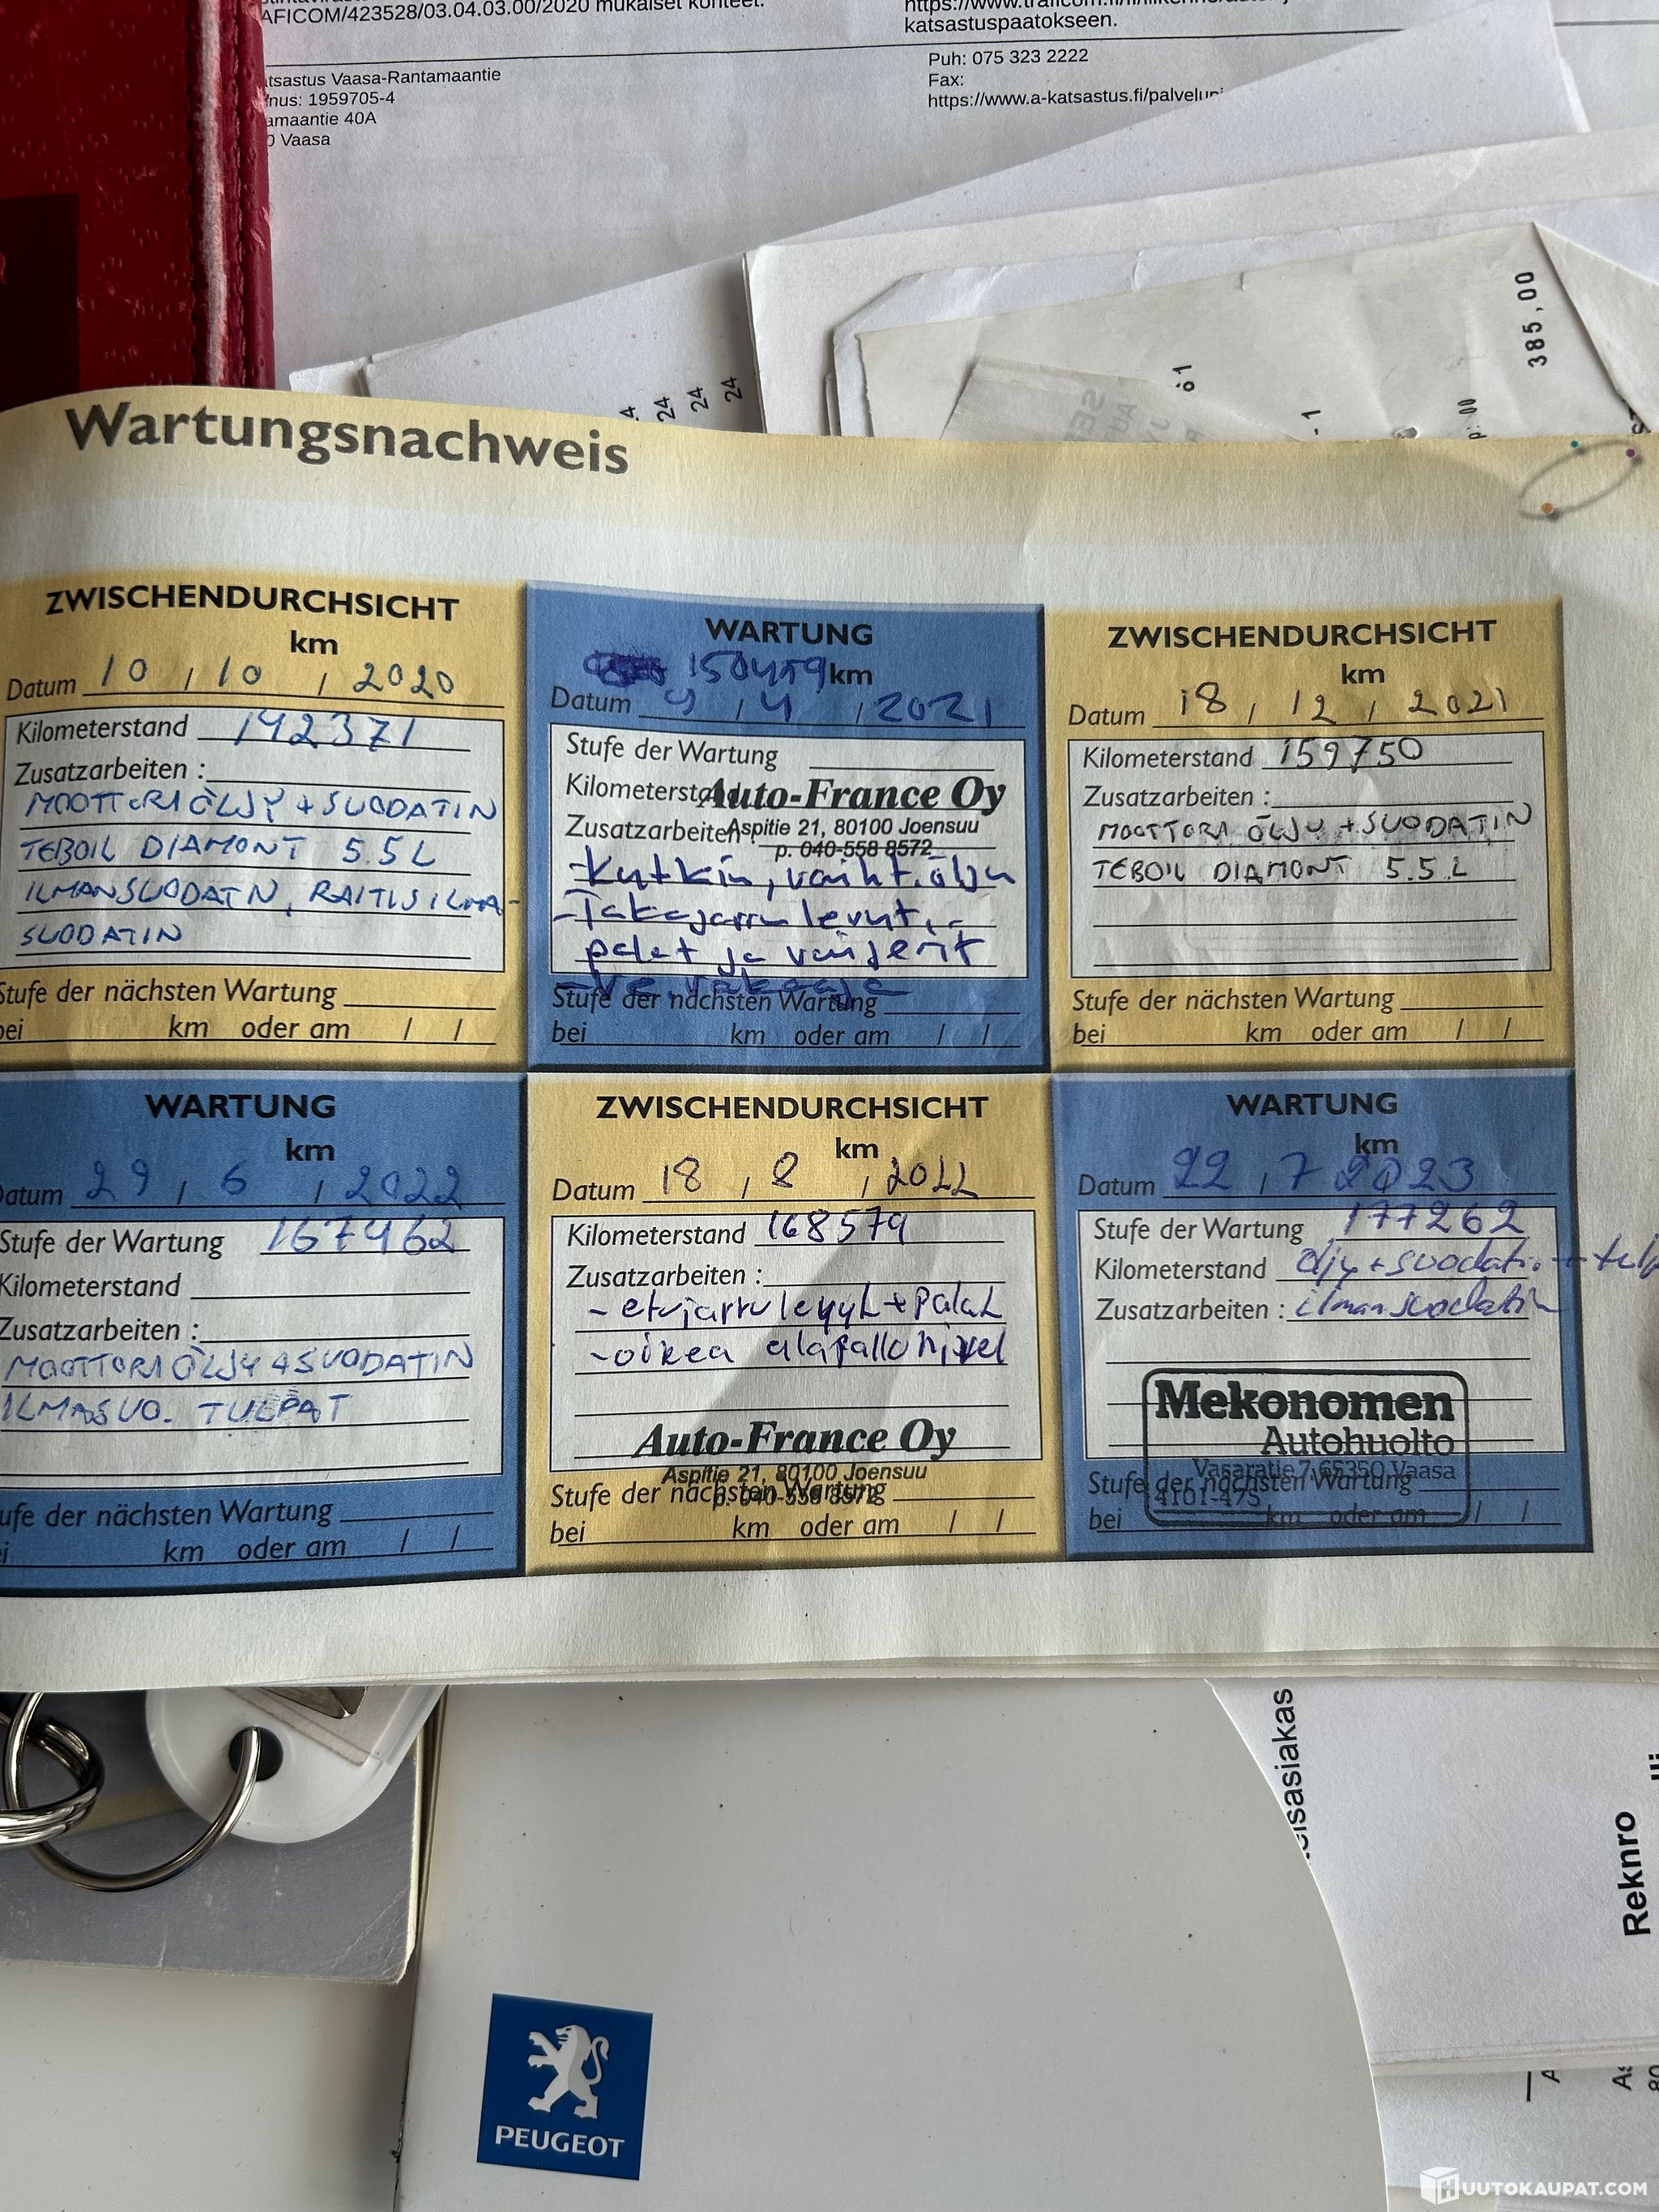 AFICOM/423528/03.04.03.00/2020 mukaiset kohteet.
katsastuspaatokseen.
tsastus Vaasa-Rantamaantie
nus: 1959705-4
amaantie 40A
0 Vaasa
Puh: 075 323 2222
Fax:
https://www.a-katsastus.fi/palvelupi
385,00
61
24
24
24
-1
Wartungsnachweis
ZWISCHENDURCHSICHT
km
Datum 10 / 10 / 2020
Kilometerstand 142371
Zusatzarbeiten :
MOOTTORIÖLJY + SUODATIN
TEBOIL DIAMONT 5.5 L
ILMANSUODATIN, RAITISILMA-
SUODATIN
Stufe der nächsten Wartung
bei km oder am / /
WARTUNG
km
Datum 9 / 4 / 2021
Stufe der Wartung
Kilometerstand
Auto-France Oy
Zusatzarbeiten :
Aspitie 21, 80100 Joensuu
p. 040-558 8572
palat ja vaijerit
Stufe der nächsten Wartung
bei km oder am / /
ZWISCHENDURCHSICHT
km
Datum 18 / 12 / 2021
Kilometerstand 159750
Zusatzarbeiten :
MOOTTORI ÖLJY + SUODATIN
TEBOIL DIAMONT 5.5 L
Stufe der nächsten Wartung
bei km oder am / /
WARTUNG
km
Datum 29 / 6 / 2022
Stufe der Wartung 167462
Kilometerstand
Zusatzarbeiten :
MOOTTORIÖLJY + SUODATIN
ILMASUO. TULPAT
ufe der nächsten Wartung
i km oder am / /
ZWISCHENDURCHSICHT
km
Datum 18 / 8 / 2022
Kilometerstand 168579
Zusatzarbeiten :
- etujarrulevyt + palat
- oikea alapallonivel
Auto-France Oy
Aspitie 21, 80100 Joensuu
p. 040-558 8572
Stufe der nächsten Wartung
bei km oder am / /
WARTUNG
km
Datum 22 / 7 2023
Stufe der Wartung 177262
Kilometerstand öljy + suodatin + tulp
Zusatzarbeiten : ilmansuodatin
Mekonomen
Autohuolto
Vasaratie 7, 65350 Vaasa
4101-475
Stufe der nächsten Wartung
bei km oder am / /
eisasiakas
Reknro
PEUGEOT
HUUTOKAUPAT.COM